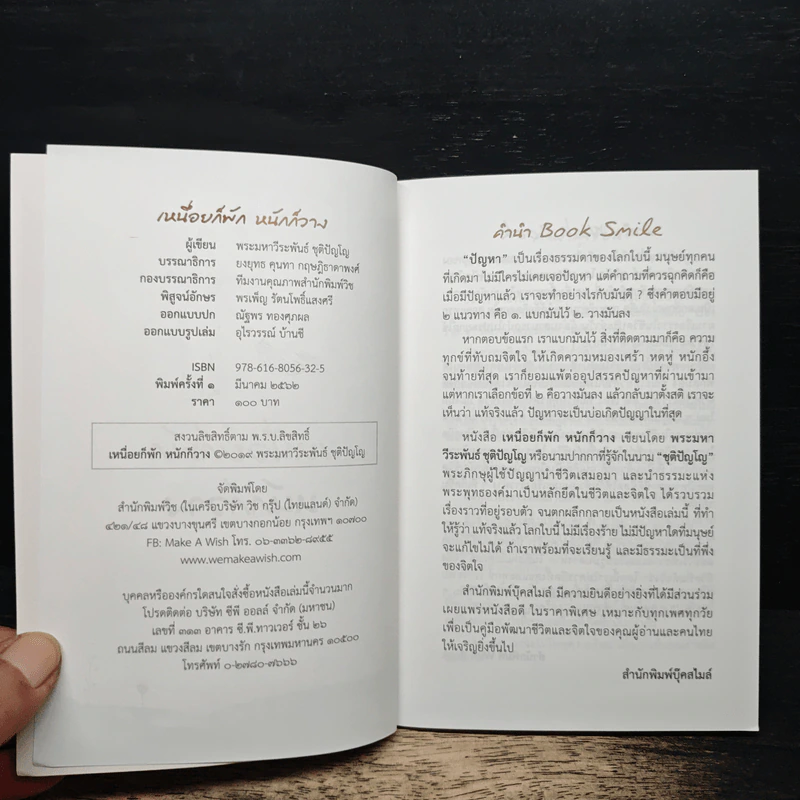 เหนื่อยก็พัก หนักก็วาง
ผู้เขียน พระมหาวีระพันธ์ ชุติปัญโญ
บรรณาธิการ ยงยุทธ คุนทา กฤษฎิธาดาพงศ์
กองบรรณาธิการ ทีมงานคุณภาพสำนักพิมพ์วิช
พิสูจน์อักษร พรเพ็ญ รัตนโพธิ์แสงศรี
ออกแบบปก ณัฐพร ทองศุภผล
ออกแบบรูปเล่ม อุไรวรรณ์ บ้านชี
ISBN 978-616-8056-32-5
พิมพ์ครั้งที่ ๑ มีนาคม ๒๕๖๒
ราคา ๑๐๐ บาท
สงวนลิขสิทธิ์ตาม พ.ร.บ.ลิขสิทธิ์
เหนื่อยก็พัก หนักก็วาง ©๒๐๑๙ พระมหาวีระพันธ์ ชุติปัญโญ
จัดพิมพ์โดย
สำนักพิมพ์วิช (ในเครือบริษัท วิช กรุ๊ป (ไทยแลนด์) จำกัด)
๔๒๑/๔๘ แขวงบางขุนศรี เขตบางกอกน้อย กรุงเทพฯ ๑๐๗๐๐
FB: Make A Wish โทร. ๐๖-๓๓๖๒-๘๙๕๕
www.wemakeawish.com
บุคคลหรือองค์กรใดสนใจสั่งซื้อหนังสือเล่มนี้จำนวนมาก
โปรดติดต่อ บริษัท ซีพี ออลล์ จำกัด (มหาชน)
เลขที่ ๓๑๓ อาคาร ซี.พี.ทาวเวอร์ ชั้น ๒๖
ถนนสีลม แขวงสีลม เขตบางรัก กรุงเทพมหานคร ๑๐๕๐๐
โทรศัพท์ ๐-๒๗๘๐-๗๖๖๖
คำนำ Book Smile
“ปัญหา” เป็นเรื่องธรรมดาของโลกใบนี้ มนุษย์ทุกคน
ที่เกิดมา ไม่มีใครไม่เคยเจอปัญหา แต่คำถามที่ควรฉุกคิดก็คือ
เมื่อมีปัญหาแล้ว เราจะทำอย่างไรกับมันดี ? ซึ่งคำตอบมีอยู่
๒ แนวทาง คือ ๑. แบกมันไว้ ๒. วางมันลง
หากตอบข้อแรก เราแบกมันไว้ สิ่งที่ติดตามมาก็คือ ความ
ทุกข์ที่ทับถมจิตใจ ให้เกิดความหมองเศร้า หดหู่ หนักอึ้ง
จนท้ายที่สุด เราก็ยอมแพ้ต่ออุปสรรคปัญหาที่ผ่านเข้ามา
แต่หากเราเลือกข้อที่ ๒ คือวางมันลง แล้วกลับมาตั้งสติ เราจะ
เห็นว่า แท้จริงแล้ว ปัญหาจะเป็นบ่อเกิดปัญญาในที่สุด
หนังสือ เหนื่อยก็พัก หนักก็วาง เขียนโดย พระมหา
วีระพันธ์ ชุติปัญโญ หรือนามปากกาที่รู้จักในนาม “ชุติปัญโญ”
พระภิกษุผู้ใช้ปัญญานำชีวิตเสมอมา และนำธรรมะแห่ง
พระพุทธองค์มาเป็นหลักยึดในชีวิตและจิตใจ ได้รวบรวม
เรื่องราวที่อยู่รอบตัว จนตกผลึกกลายเป็นหนังสือเล่มนี้ ที่ทำ
ให้รู้ว่า แท้จริงแล้ว โลกใบนี้ ไม่มีเรื่องร้าย ไม่มีปัญหาใดที่มนุษย์
จะแก้ไขไม่ได้ ถ้าเราพร้อมที่จะเรียนรู้ และมีธรรมะเป็นที่พึ่ง
ของจิตใจ
สำนักพิมพ์บุ๊คสไมล์ มีความยินดีอย่างยิ่งที่ได้มีส่วนร่วม
เผยแพร่หนังสือดี ในราคาพิเศษ เหมาะกับทุกเพศทุกวัย
เพื่อเป็นคู่มือพัฒนาชีวิตและจิตใจของคุณผู้อ่านและคนไทย
ให้เจริญยิ่งขึ้นไป
สำนักพิมพ์บุ๊คสไมล์